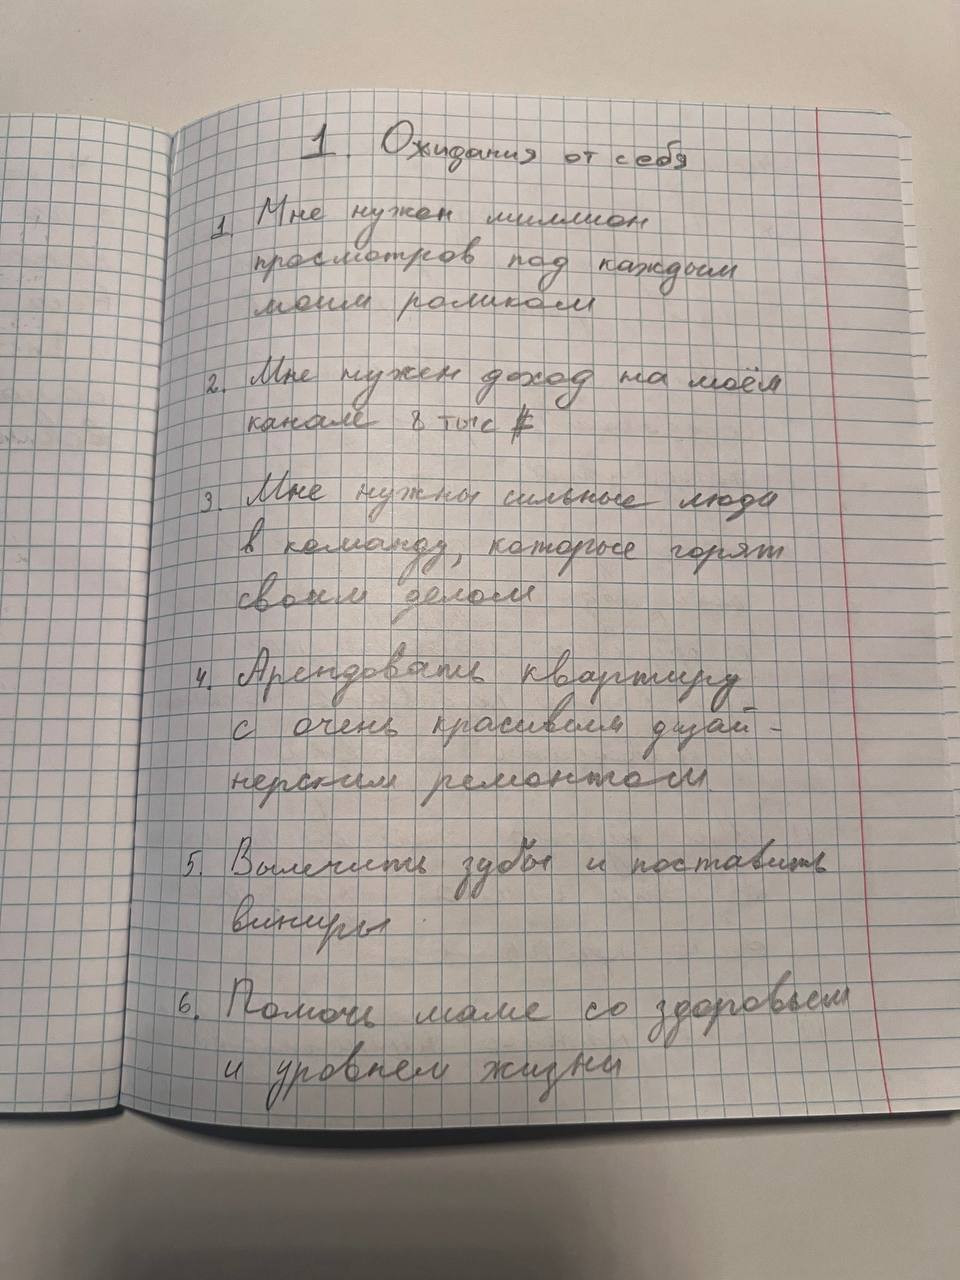 1. Ожидания от себя
1. Мне нужен миллион
просмотров под каждым
моим роликом
2. Мне нужен доход на моём
канале 8 тыс $
3. Мне нужны сильные люди
в команду, которые горят
своим делом
4. Арендовать квартиру
с очень красивым дизай-
нерским ремонтом
5. Вылечить зубы и поставить
виниры
6. Помочь маме со здоровьем
и уровнем жизни